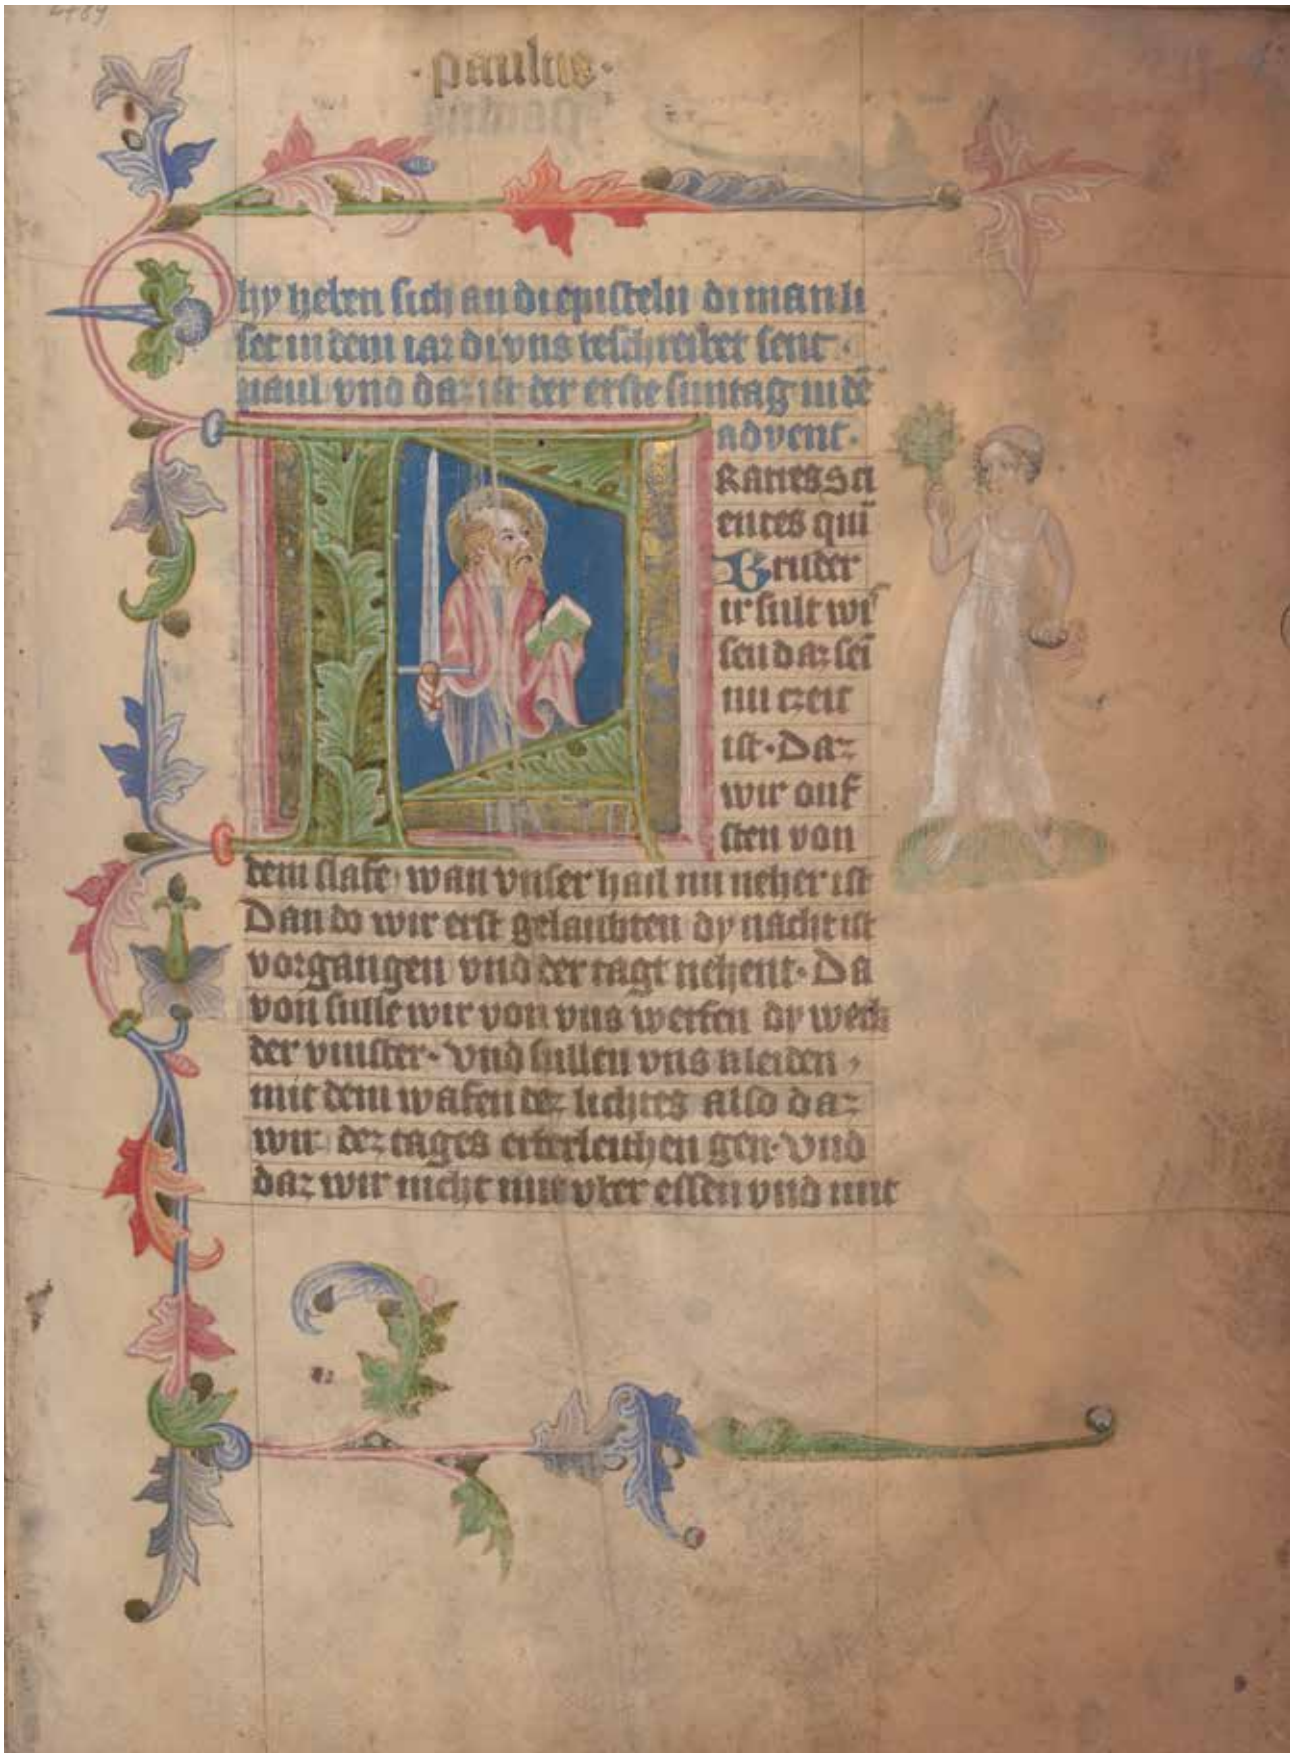 2789
· paulus ·
hy heben sich an di episteln di man li
set in dem iar di vns beschreibet sent ·
paul vnd daz ist der erste suntag in dē
advent ·
Ratres sci
entes qui
Bruder
ir sult wi
sen daz sei
nu czeit
ist · Daz
wir auf
sten von
dem slafe wan vnser hail nu neher ist
Dan do wir erst gelaubten dy nacht ist
vorgangen vnd der tagt nehent · Da
von sulle wir von vns werfen dy werk
der vinster · vnd sullen vns kleiden ,
mit dem wafen dez lichtes also daz
wir dez tages erberleichen gen · vnd
daz wir nicht mit vber essen vnd mit